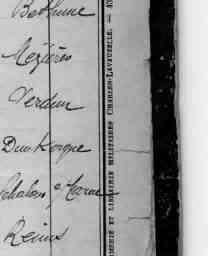 Bethune
Mézières
Verdun
Dunkerque
Chalons s/ Marne
Reims
MERIE ET LIBRAIRIE MILITAIRES CHARLES-LAVAUZELLE. —